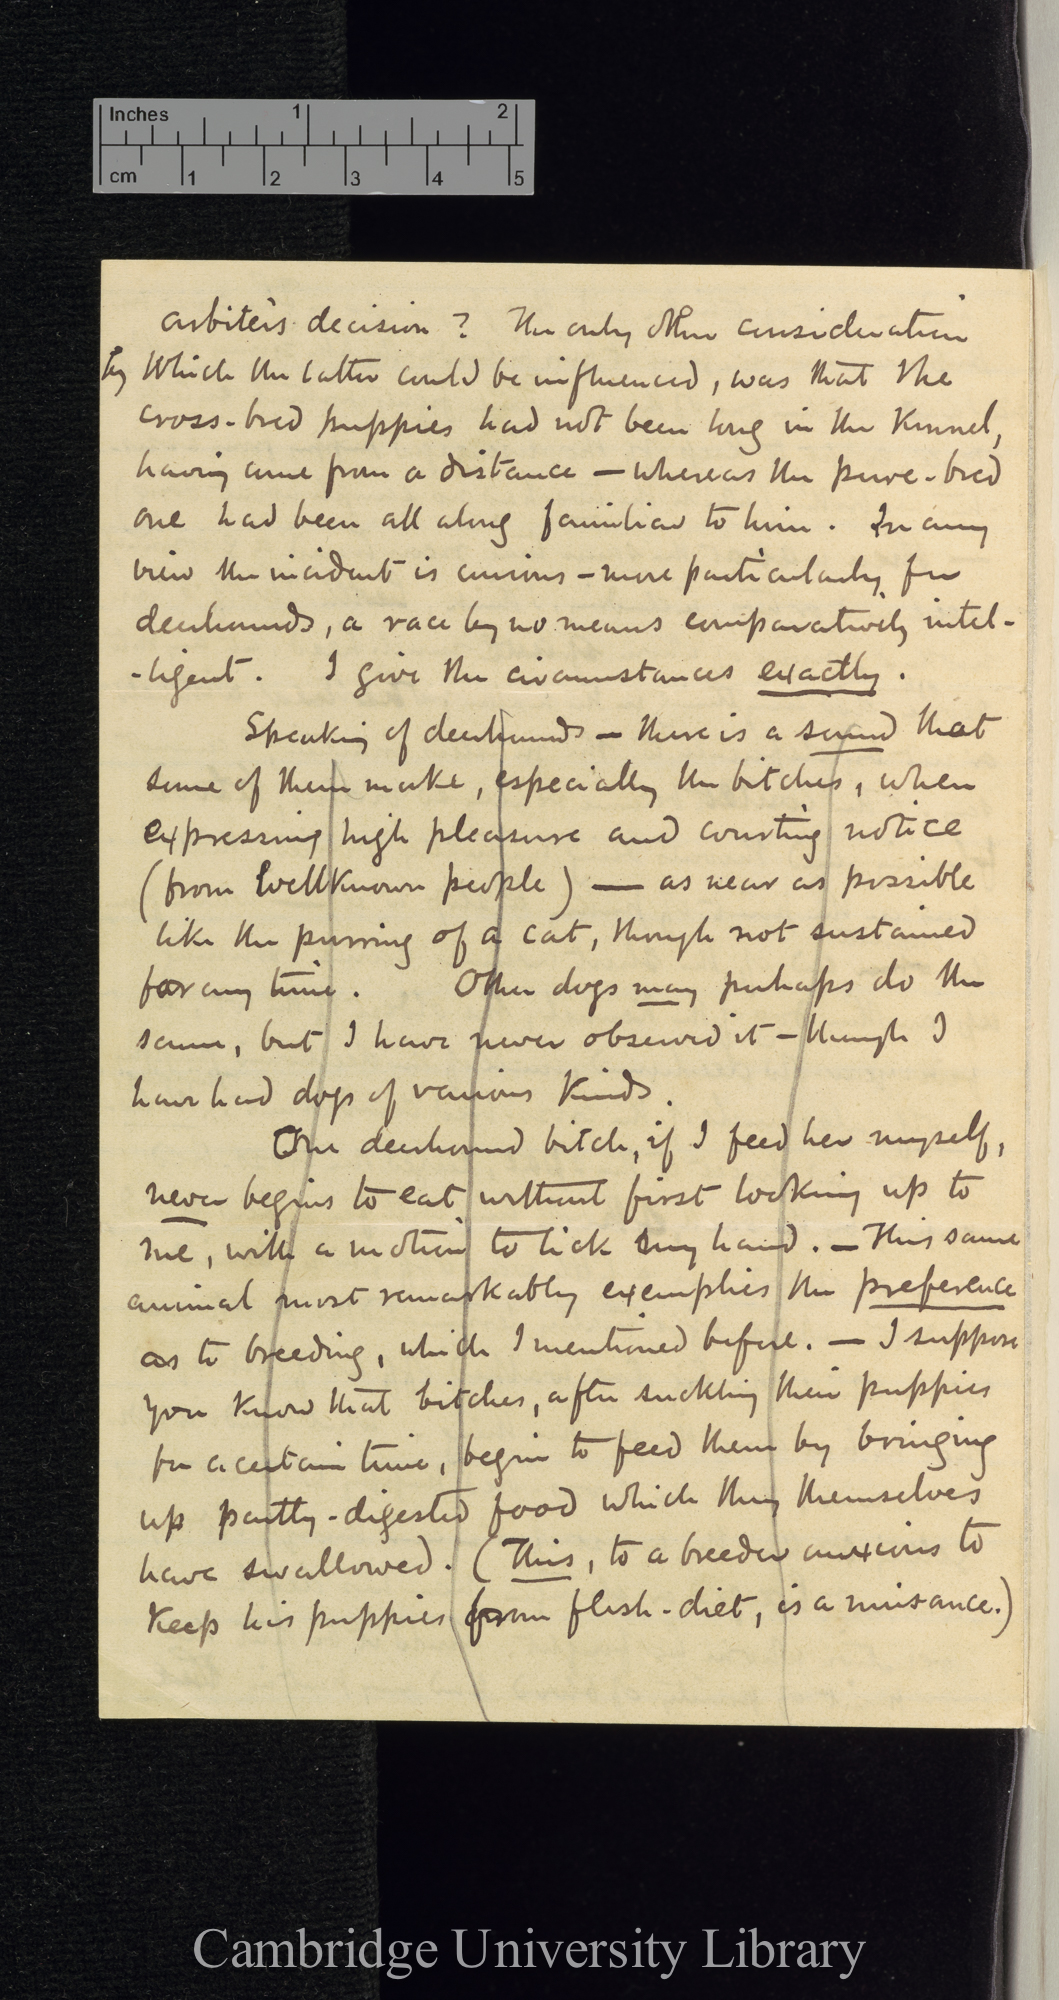 Inches 1 2
cm 1 2 3 4 5
arbiter's decision? The only other consideration
by which the latter could be influenced, was that the
cross-bred puppies had not been long in the Kennel,
having come from a distance — whereas the pure-bred
one had been all along familiar to him. In any
view the incident is curious — more particularly for
deerhounds, a race by no means comparatively intel-
-ligent. I give the circumstances exactly.
Speaking of deerhounds — there is a sound that
some of them make, especially the bitches, when
expressing high pleasure and courting notice
(from wellknown people) — as near as possible
like the purring of a cat, though not sustained
for any time. Other dogs may perhaps do the
same, but I have never observed it — though I
have had dogs of various Kinds.
One deerhound bitch, if I feed her myself,
never begins to eat without first looking up to
me, with a motion to lick my hand. — This same
animal most remarkably exemplies the preference
as to breeding, which I mentioned before. — I suppose
you know that bitches, after suckling their puppies
for a certain time, begin to feed them by bringing
up partly-digested food which they themselves
have swallowed. (This, to a breeder anxious to
Keep his puppies from flesh-diet, is a nuisance.)
Cambridge University Library